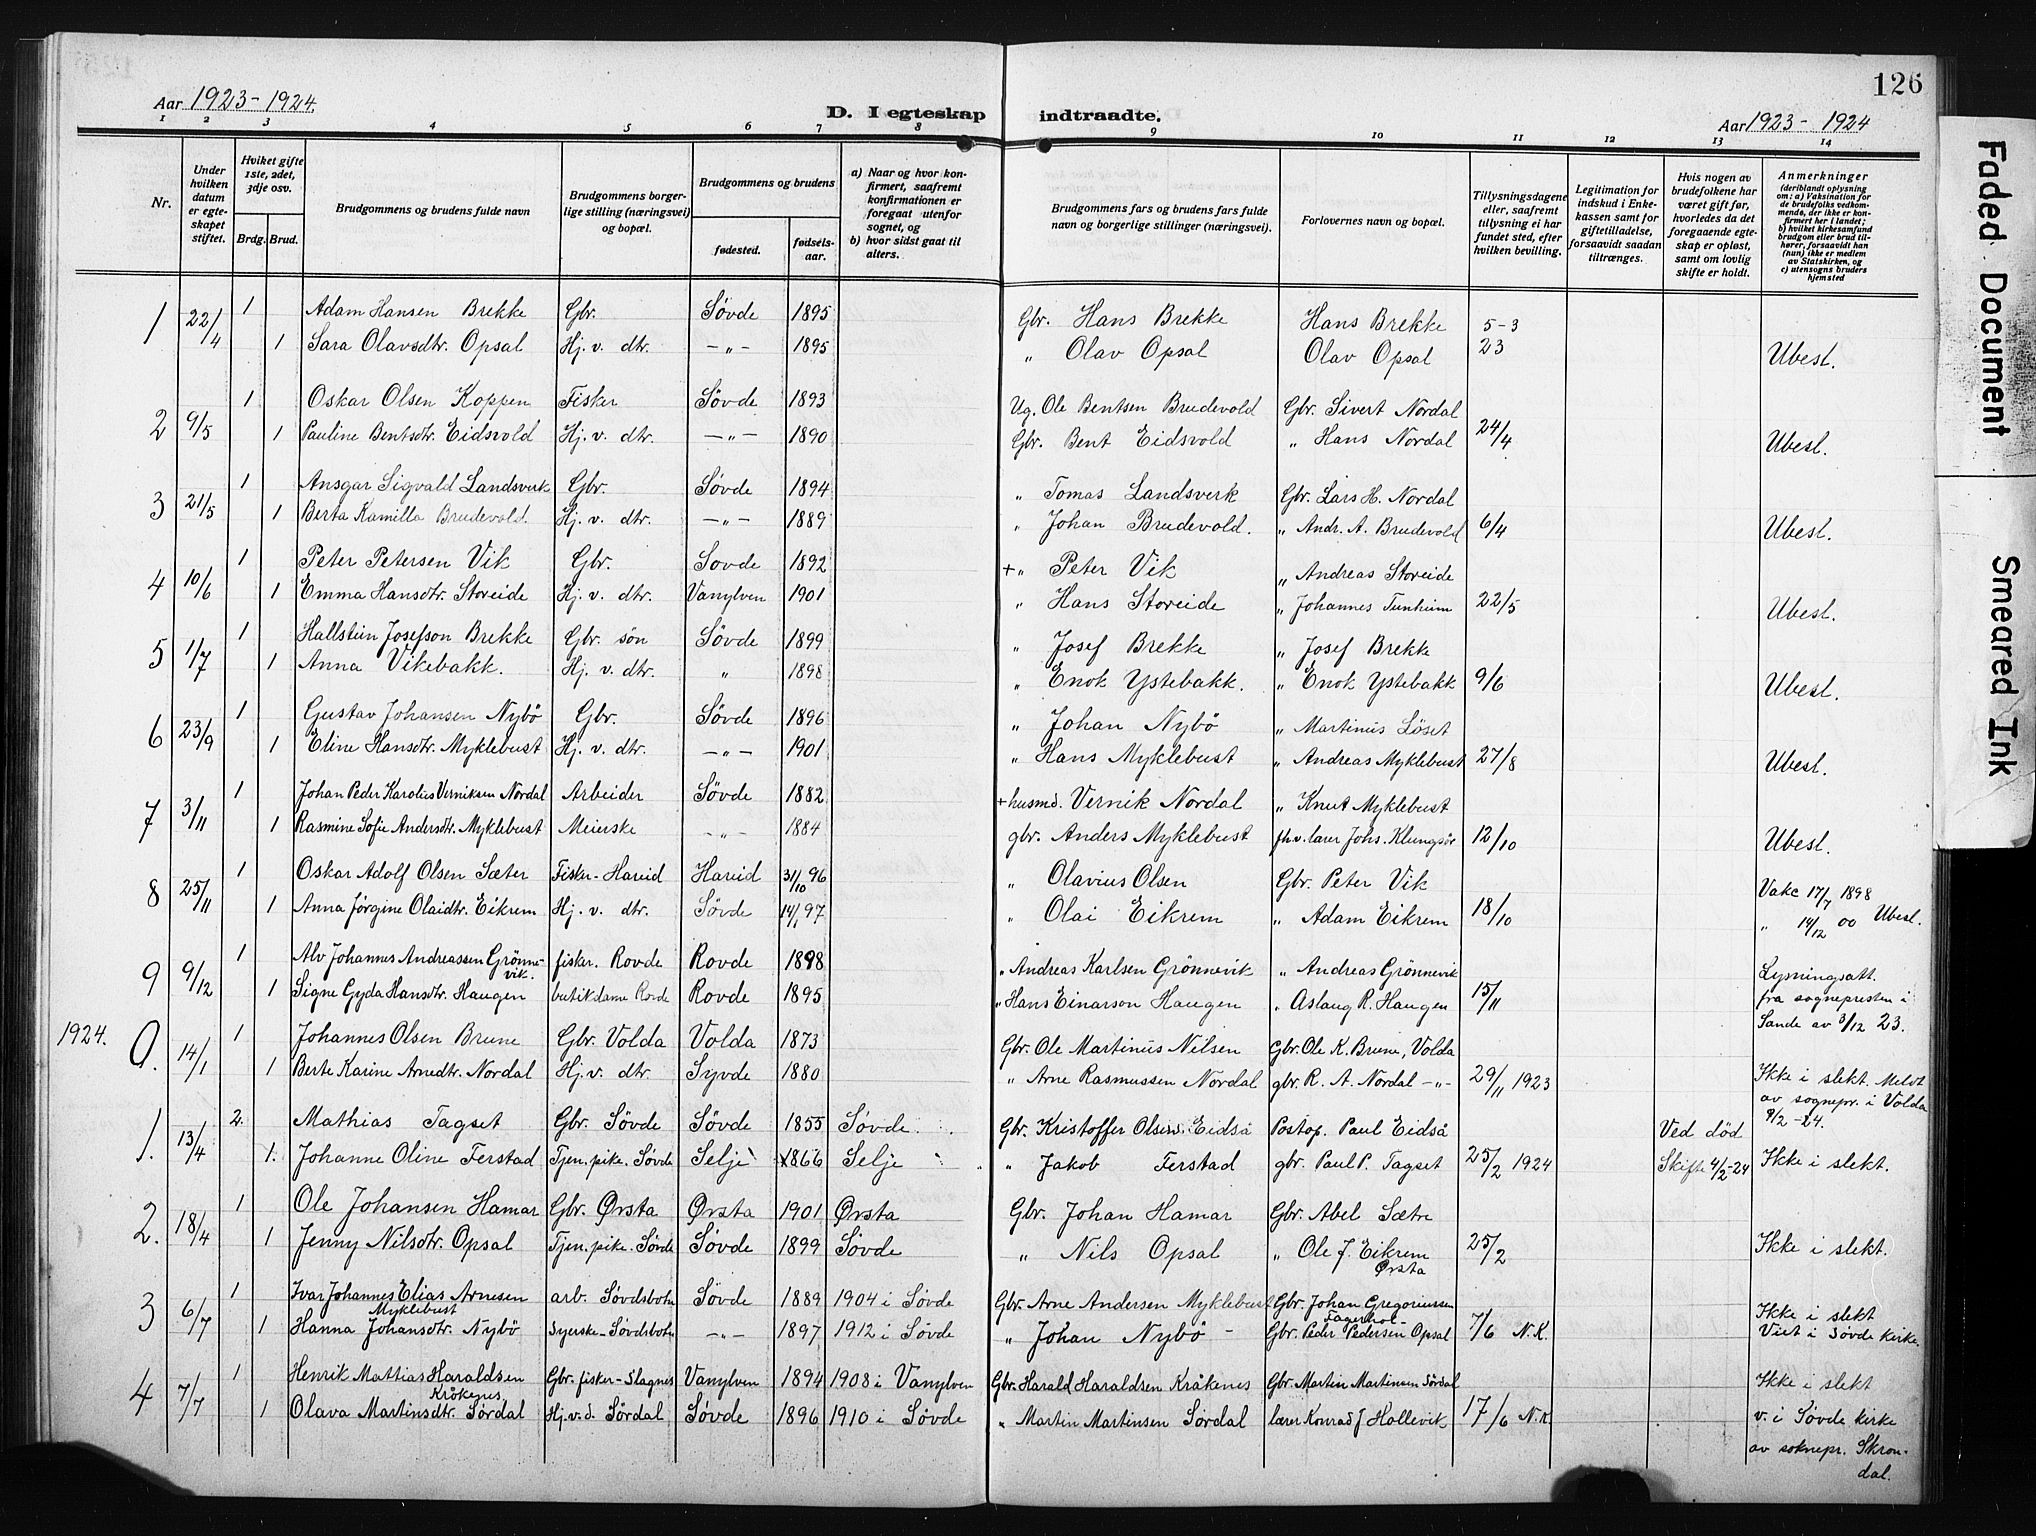 126
Aar 1923-1924.
D. I egteskap indtraadte.
Aar 1923- 1924
1 2 3 4 5 6 7 8 9 10 11 12 13 14
Nr.
Under hvilken datum er egteskapet stiftet.
Hvilket gifte 1ste, 2det, 3dje osv.
Brdg. Brud.
Brudgommens og brudens fulde navn
Brudgommens borgerlige stilling (næringsvei) og bopæl.
Brudgommens og brudens
fødested. fødselsaar.
a) Naar og hvor konfirmert, saafremt konfirmationen er foregaat utenfor sognet, og
b) hvor sidst gaat til alters.
Brudgommens fars og brudens fars fulde navn og borgerlige stillinger (næringsvei).
Forlovernes navn og bopæl.
Tillysningsdagene eller, saafremt tillysning ei har fundet sted, efter hvilken bevilling.
Legitimation for indskud i Enkekassen samt for giftetilladelse, forsaavidt saadan tiltrænges.
Hvis nogen av brudefolkene har været gift før, hvorledes da det foregaaende egteskap er opløst, samt om lovlig skifte er holdt.
Anmerkninger (deriblandt oplysning om: a) Vaksination for de brudefolks vedkommende, der ikke er konfirmert her i landet; b) hvilket kirkesamfund brudgom eller brud tilhører, forsaavidt han (hun) ikke er medlem av Statskirken, og c) utensogns bruders hjemsted
1 22/4 1 Adam Hansen Brekke Gbr. Søvde 1895 Gbr. Hans Brekke Hans Brekke 5-3
1 Sara Olavsdtr. Opsal Hj. v. dtr. -"- 1895 " Olav Opsal Olav Opsal 23 Ubesl.
2 9/5 1 Oskar Olsen Koppen Fisker Søvde 1893 Ug. Ole Bentsen Brudevold Gbr. Sivert Nordal
1 Pauline Bentsdtr. Eidsvold Hj. v. dtr. -"- 1890 Gbr. Bent Eidsvold " Hans Nordal 24/4 Ubesl.
3 21/5 1 Ansgar Sigvald Landsverk Gbr. Søvde 1894 " Tomas Landsverk Gbr. Lars H. Nordal
1 Berta Kamilla Brudevold. Hj. v. dtr. -"- 1889 " Johan Brudevold. " Andr. A. Brudevold 6/4 Ubesl.
4 10/6 1 Peter Petersen Vik Gbr. Sovde 1892 + " Peter Vik " Andreas Storeide
1 Emma Hansdtr. Storeide Hj. v. dtr. Vanylven 1901 " Hans Storeide " Johannes Tunheim 22/5 Ubesl.
5 1/7 1 Hallstein Josefson Brekke Gbr. søn Søvde 1899 " Josef Brekke " Josef Brekke
1 Anna Vikebakk. Hj. v. dtr. " 1898 " Enok Ystebakk. " Enok Ystebakk 9/6 Ubesl.
6 23/9 1 Gustav Johansen Nybö Gbr. Søvde 1896 " Johan Nybö " Martinus Löset
1 Eline Hansdtr. Myklebust Hj. v. dtr. -"- 1901 " Hans Myklebust " Andreas Myklebust 27/8 Ubesl.
7 3/11 1 Johan Peder Karolius Verniksen Nordal Arbeider Søvde 1882 + husmd. Vernik Nordal " Knut Myklebust
1 Rasmine Sofie Andersdtr. Myklebust Meierske -"- 1884 gbr. Anders Myklebust fh.v. lærer Johs. Klungsör 12/10 Ubesl.
8 25/11 1 Oskar Adolf Olsen Sæter Fisker-Hareid Hareid 31/10 96 " Olavius Olsen Gbr. Peter Vik Vakc 17/7 1898
1 Anna Jørgine Olaidtr. Eikrem Hj. v. dtr. Søvde 14/1 97 " Olai Eikrem " Adam Eikrem 18/10 " 14/12 00 Ubesl.
9 9/12 1 Alv Johannes Andreassen Grönnevik. fisker. Rovde Rovde 1898 " Andreas Karlsen Grönnevik " Andreas Grönnevik Lysningsatt.
1 Signe Gyda Hansdtr. Haugen butikdame Rovde Rovde 1895 " Hans Einarson Haugen " Aslaug R. Haugen 15/11 fra sognepresten i Sande av 3/12 23.
1924.
0. 14/1 1 Johannes Olsen Brune Gbr. Volda Volda 1873 Gbr. Ole Martinus Nilsen Gbr. Ole K. Brune, Volda
1 Berte Karine Arnedtr. Nordal Hj. v. dtr. Syvde 1880 " Arne Rasmussen Nordal gbr. R. A. Nordal -"- 29/11 1923 Ikke i slekt. Meldt av sognepr. i Volda 9/2 -24.
1. 13/4 2. Mathias Tagset Gbr. Søvde Søvde 1855 Søvde. Gbr. Kristoffer Olsen Eidså Postop. Paul Eidså Ved död
1. Johanne Oline Ferstad Tjen.pike. Søvde Selje 1866 Selje " Jakob Ferstad gbr. Paul P. Tagset 25/2 1924 Skifte 4/2-24 Ikke i slekt.
2. 18/4 1 Ole Johansen Hamar Gbr. Ørsta Ørsta 1901 Ørsta Gbr. Johan Hamar Gbr. Abel Sætre
1 Jenny Nilsdtr. Opsal Tjen.pike. Søvde Søvde 1899 Søvde " Nils Opsal " Ole J. Eikrem Ørsta 25/2 Ikke i slekt.
3 6/7 1 Ivar Johannes Elias Arnesen Myklebust arb. Søvdsbotn Søvde 1889 1904 i Søvde Gbr. Arne Andersen Myklebust Gbr. Johan Gregoriussen Fagerhol- Ikke i slekt
1 Hanna Johansdtr. Nybö Syerske-Søvdsbotn -"- 1897 1912 i Søvde " Johan Nybö - Gbr. Peder Pedersen Opsal 7/6 N.K. Viet i Søvde kirke.
4 7/7 1 Henrik Mattias Haraldsen Kråkenes Gbr. fisker-Slagnes Vanylven 1894 1908 i Vanylven Gbr. Harald Haraldsen Kråkenes Gbr. Martin Martinsen Sördal Ikke i slekt
1 Olava Martinsdtr. Sørdal Hj.v.d. Sördal Søvde 1896 1910 i Søvde " Martin Martinsen Sørdal lærer Konrad J Hollevik 17/6 N.K. v. i Søvde kirke av soknepr. Skrondal.
Faded Document
Smeared Ink